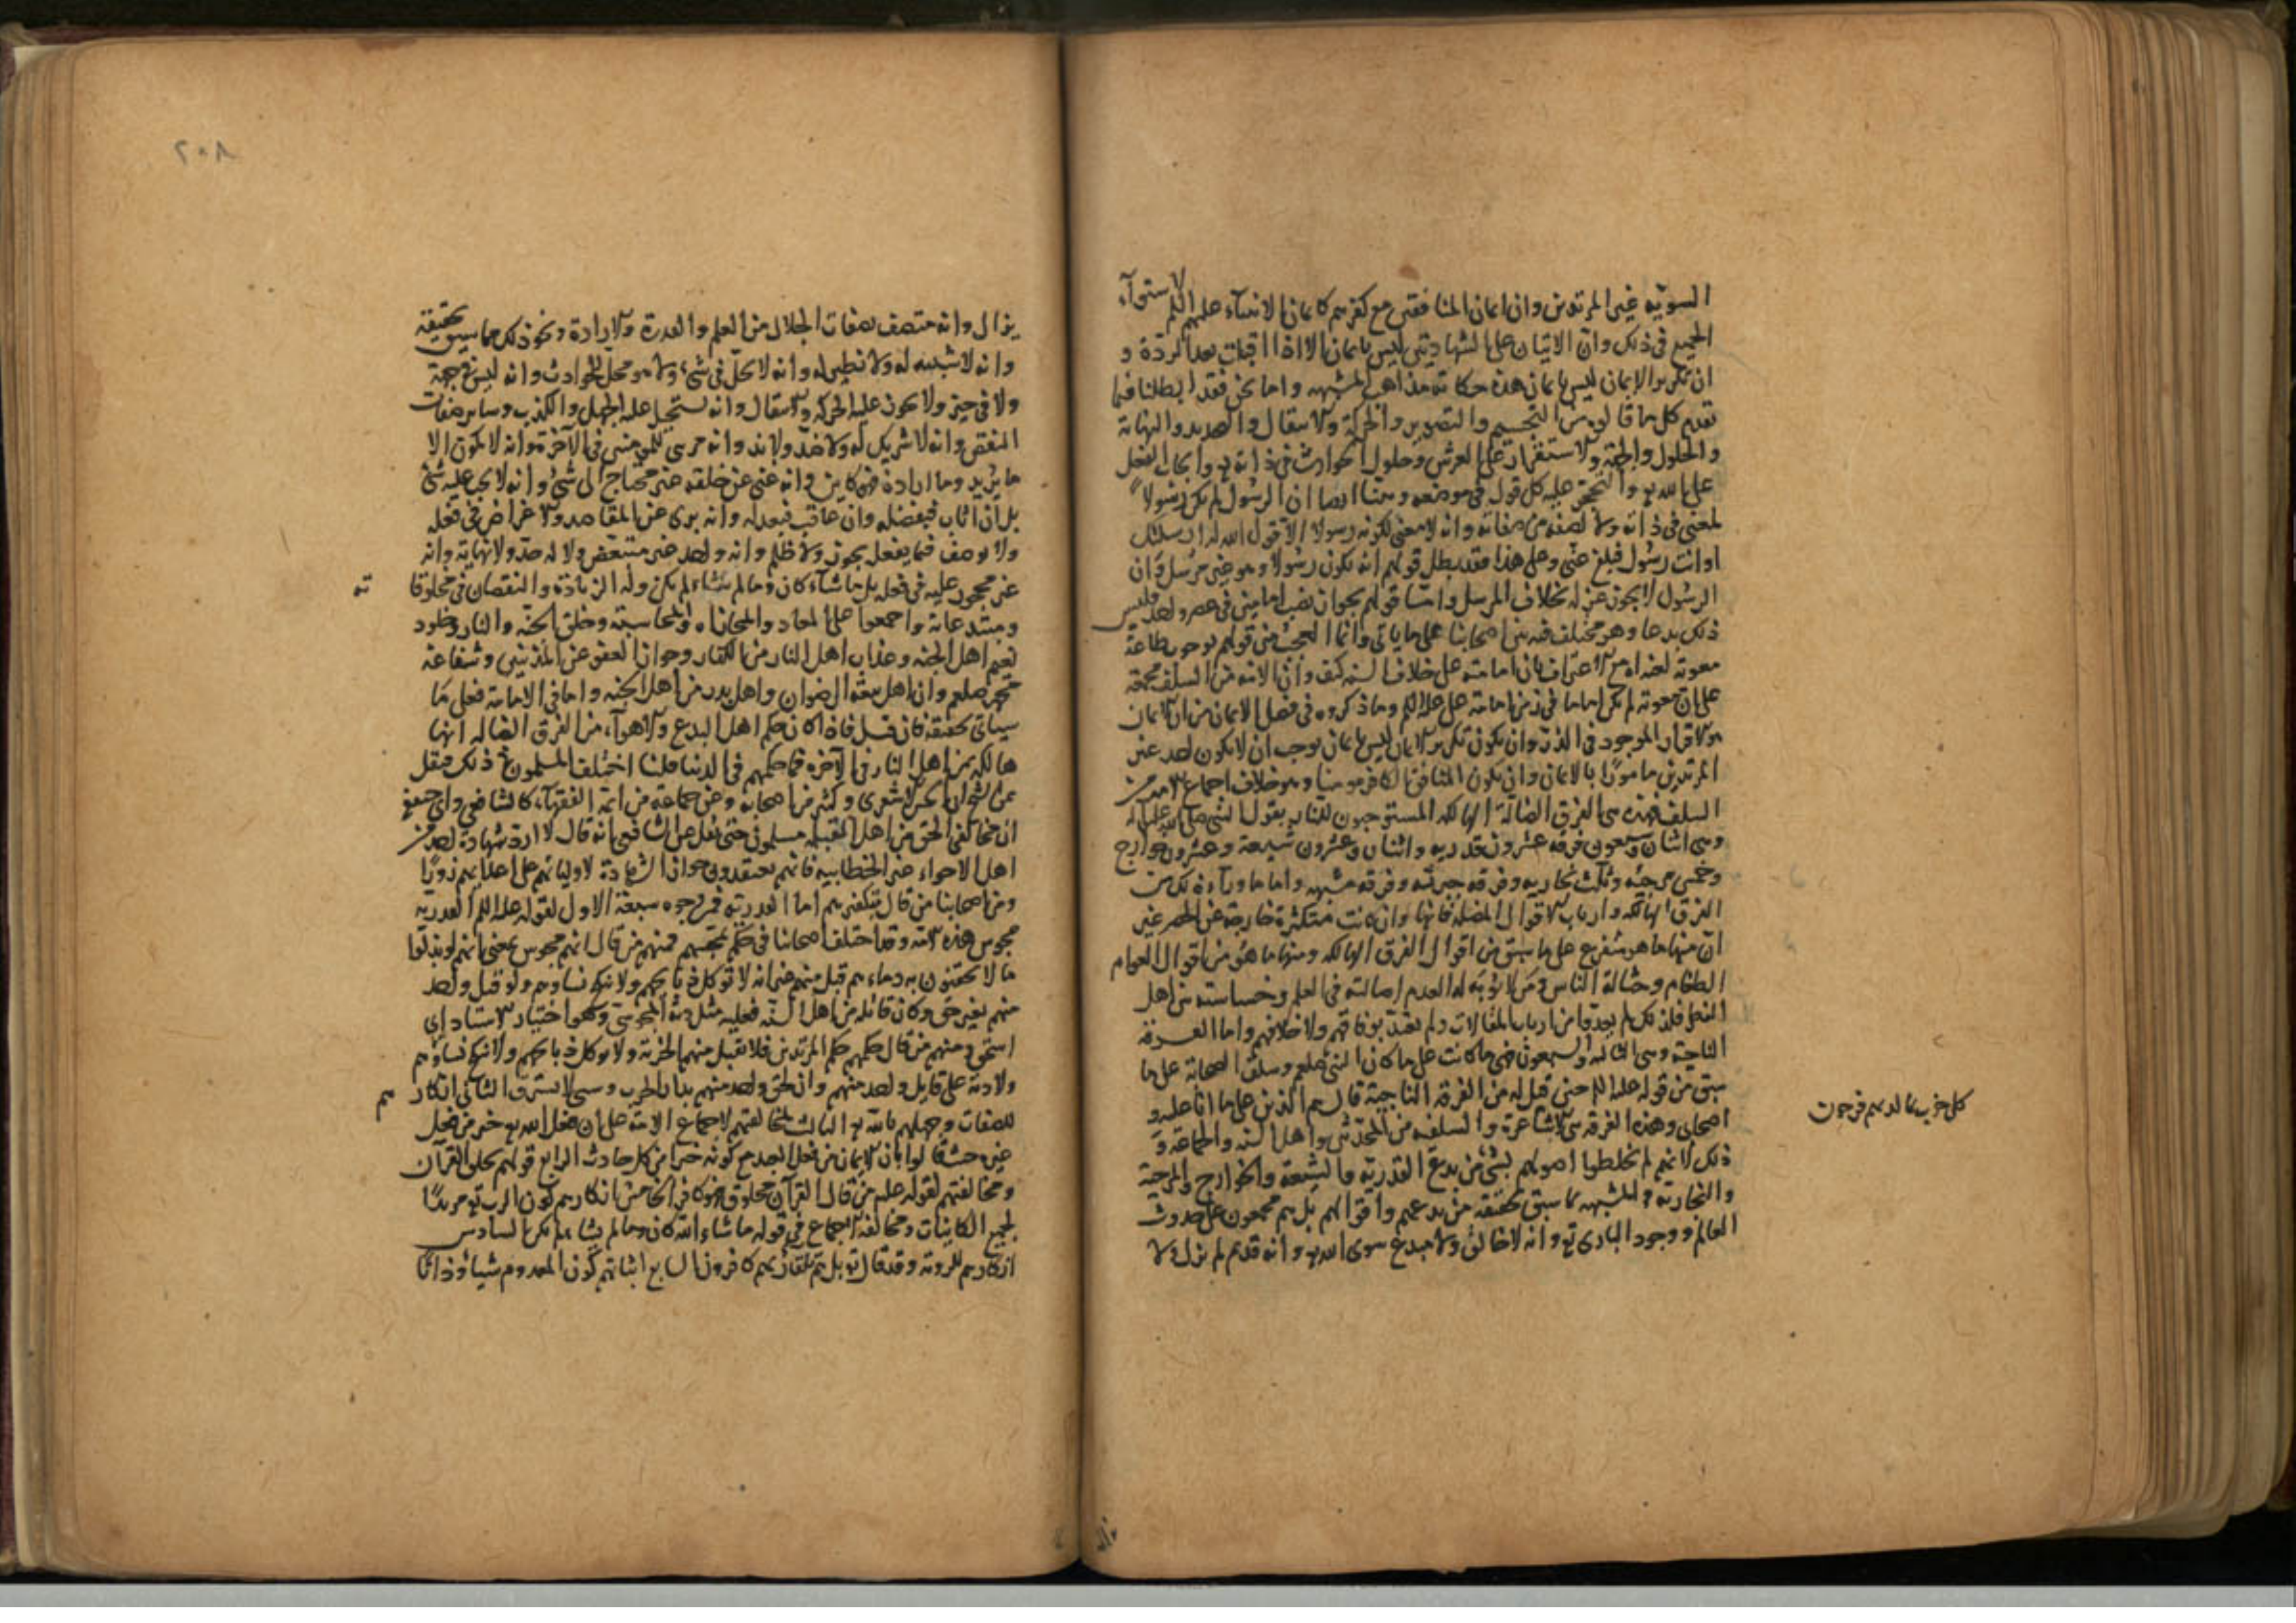 السوية غير المرتدين وان ايمان المنافقين مع كفرهم كايمان الانبياء عليهم السلم لاستواء
الجميع في ذلك وان الاتيان على الشهادتين ليس بايمان الا اذا اتيت بعد الردة و
ان تكرير الايمان ليس بايمان هذه حكاية مذاهب المشبهه واما نحن فقد ابطلنا فيما
تقدم كل ما قالوه من التجسيم والتصوير والحركة والانتقال والتحديد والنهاية
والحلول والجهة والاستقرار على العرش وحلول الحوادث في ذاته تع وايجاب الفعل
على الله تع والتحجر عليه كل قول في موضعه وبينا ايضا ان الرسول لم يكن رسولا
لمعنى في ذاته ولا لصفة من صفاته وانه لا معنى لكونه رسولا الا قول الله له ارسلتك
او انت رسول فبلغ عني وعلى هذا فقد بطل قولهم انه يكون رسولا وهو غير مرسل وان
الرسول لا يجوز عزله بخلاف المرسل واما قولهم بجواز نصب امامين في عصر واحد فليس
ذلك بدعا وهو مختلف فيه بين اصحابنا على ما ياتي وانما العجب من قولهم بوجوب طاعة
معوية لعنه الله مع الاعتراف بان امامته على خلاف السنه كيف وان الامه من السلف مجمعة
على ان معوية لم يكن اماما في زمن امامة علي عليه السلم وما ذكروه في فصل الايمان من ان الايمان
هو الاقرار الموجود في الذر وان يكون تكرير الايمان ليس بايمان يوجب ان لا يكون احد غير
المرتدين مامورا بالايمان وان يكون المنافق الكافر مومنا وهو خلاف اجماع الامة من
السلف فهذه هي الفرق الضالة الهالكه المستوجبون للنار بقول النبي صلى الله عليه وآله
وهي اثنان وسبعون فرقة عشرون قدريه واثنان وعشرون شيعة وعشرون خوارج
وخمس مرجئه وثلث نجاريه وفرقه جبريه وفرقه مشبهه واما ما وراء ذلك من
الفرق الهالكه وارباب الاقوال المضلة فانها وان كانت متكثرة خارجة عن الحصر غير
ان منها ما هو متفرع على ما سبق من اقوال الفرق الهالكه ومنها ما هو من اقوال العوام
الطغام وحثالة الناس ومن لا يؤبه له لعدم اصالته في العلم وخساسته بين اهل
الفضل فلذلك لم يعدوا من ارباب المقالات ولم يعتد بوفاقهم ولا خلافهم واما الفرقة
الناجية وهي الثالثه والسبعون فهي ما كانت على ما كان النبي صلعم وسلف الصحابة على ما
سبق من قوله عليه السلم حين قيل له من الفرقة الناجية قال هم الذين على ما انا عليه و
اصحابي وهذه الفرقه هي الاشاعرة والسلفيه من المحدثين واهل السنه والجماعة و
ذلك لانهم لم يخلطوا اصولهم بشيء من بدع القدرية والشيعة والخوارج والمرجئة
والنجارية والمشبهه كما سبق تحقيقه من بدعهم واقوالهم بل هم مجمعون على حدوث
العالم ووجود الباري تع وانه لا خالق ولا مبدع سوى الله تع وانه قديم لم يزل ولا
كل حزب بما لديهم فرحون
٢٠٨
يزال وانه متصف بصفات الجلال من العلم والقدرة والارادة ونحو ذلك مما سبق تحقيقه
وانه لا شبيه له ولا نظير له وانه لا يحل في شيء ولا هو محل للحوادث وانه ليس في جهة
ولا في حيز ولا يجوز عليه الحركه والانتقال وانه يستحيل عليه الجهل والكذب وساير صفات
النقص وانه لا شريك له ولا ضد ولا ند وانه مرئي للمومنين في الآخرة وانه لا يكون الا
ما يريد وما اراده فهو كاين وانه غني عن خلقه غير محتاج الى شيء وانه لا يجب عليه شئ
بل ان اثاب فبفضله وان عاقب فبعدله وانه بري عن المقاصد والاغراض في فعله
ولا يوصف فيما يفعل بجور ولا ظلم وانه واحد غير متبعض ولا له حد ولا نهاية وانه
غير محجور عليه في فعله بل ما شاء كان وما لم يشاء لم يكن وله الزيادة والنقصان في مخلوقا ته
ومبتدعاته واجمعوا على المعاد والمجازاه والمحاسبة وخلق الجنة والنار وخلود
نعيم اهل الجنه وعذاب اهل النار من الكفار وجواز العفو عن المذنبين وشفاعة
محمد صلعم وان اهل بيعة الرضوان واهل بدر من اهل الجنه واما في الامامة فعلى ما
سياتي تحقيقه فان قيل فاذا كان حكم اهل البدع والاهواء من الفرق الضالة انها
هالكه من اهل النار في الآخره فما حكمهم في الدنيا قلنا اختلف المسلمون في ذلك فنقل
عن الشيخ ابي الحسن الاشعري وكثير من اصحابه وعن جماعة من ائمة الفقهاء كالشافعي وابي حنيفة
ان مخالفي الحق من اهل القبله مسلمون حتى نقل عن الشافعي انه قال لا ارد شهادة احد من
اهل الاهواء غير الخطابيه فانهم يعتقدون جواز الشهادة لاوليائهم على اعدائهم زورا
ومن اصحابنا من قال بتكفيرهم اما القدرية فمن وجوه سبعة الاول لقوله عليه السلم القدرية
مجوس هذه الامه وقد اختلف اصحابنا في حكم تمجسهم فمنهم من قال انهم مجوس بمعنى انهم لو بذلوا
مالا يحقنون به دماءهم قبل منهم غير انه لا توكل ذبايحهم ولا تنكح نساوهم ولو قتل واحد
منهم بغير حق وكان قاتله من اهل السنه فعليه مثل دية المجوسي وهو اختيار الاستاد ابي
اسحق ومنهم من قال حكمهم حكم المرتدين فلا تقبل منهم الجزية ولا توكل ذبايحهم ولا تنكح نساوهم
ولا دية على قاتل واحد منهم وان لحق واحد منهم بدار الحرب وسبي لا يسترق الثاني انكار هم
للصفات وجهلهم بالله تع الثالث مخالفتهم لاجماع الامة على ان فعل الله تع خير من فعل
غيره حيث قالوا بان الايمان من فعل العبد مع كونه خيرا من كل حادث الرابع قولهم بخلق القرآن
ومخالفتهم لقوله علم من قال القرآن مخلوق فهو كافر الخامس انكارهم كون الرب تع مريدا
لجميع الكاينات ومخالفة الاجماع في قوله ما شاء الله كان وما لم يشاء لم يكن السادس
انكارهم للروية وقد قال تع بل هم بلقاء ربهم كافرون السابع اثباتهم كون المعدوم شيئا وذاتا